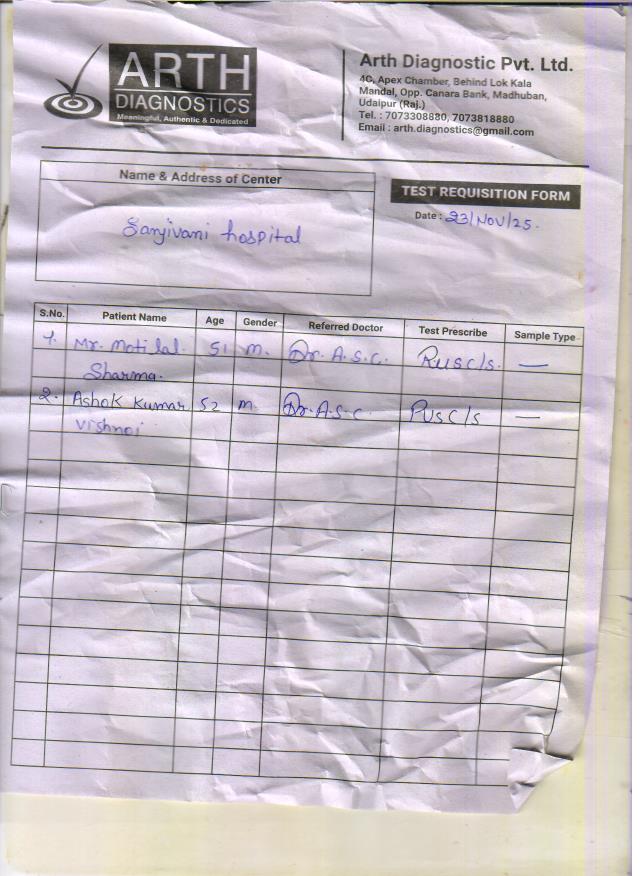 ARTH
DIAGNOSTICS
Meaningful, Authentic & Dedicated
Arth Diagnostic Pvt. Ltd.
4C, Apex Chamber, Behind Lok Kala
Mandal, Opp. Canara Bank, Madhuban,
Udaipur (Raj.)
Tel. : 7073308880, 7073818880
Email : arth.diagnostics@gmail.com
Name & Address of Center
Sanjivani hospital
TEST REQUISITION FORM
Date : 23/Nov/25.
S.No. Patient Name Age Gender Referred Doctor Test Prescribe Sample Type
1. Mr. Motilal 51 M. Dr. A.S.C. Pus c/s. —
Sharma.
2. Ashok Kumar 52 M. Dr. A.S.C. Pus c/s —
Vishnoi